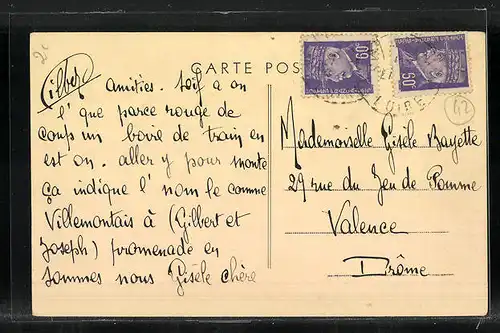 2c
CARTE POS
60
50
LOIRE
42
Gilbert
amities. Soif a on
l'que parce rouge de
coup un boire de train en
est on. aller y pour monte
ça indique l'nom le comme
Villemontais à (Gilbert et
Joseph) promenade en
sommes nous Gisèle chère
Mademoiselle Gisèle Bayette
29 rue du Jeu de Pomme
Valence
Drôme